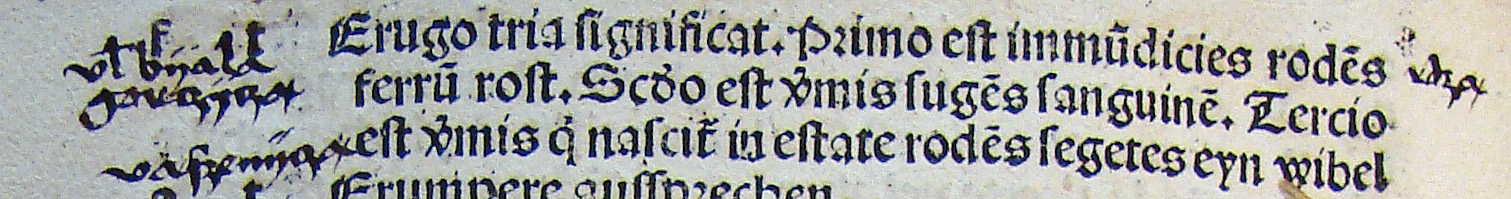 Erugo tria significat. Primo est immūdicies rodēs
ferrū rost. Scdo est vmis sugēs sanguinē. Tercio
est vmis q̄ nascit in estate rodēs segetes eyn wibel
Erumpere aussprechen